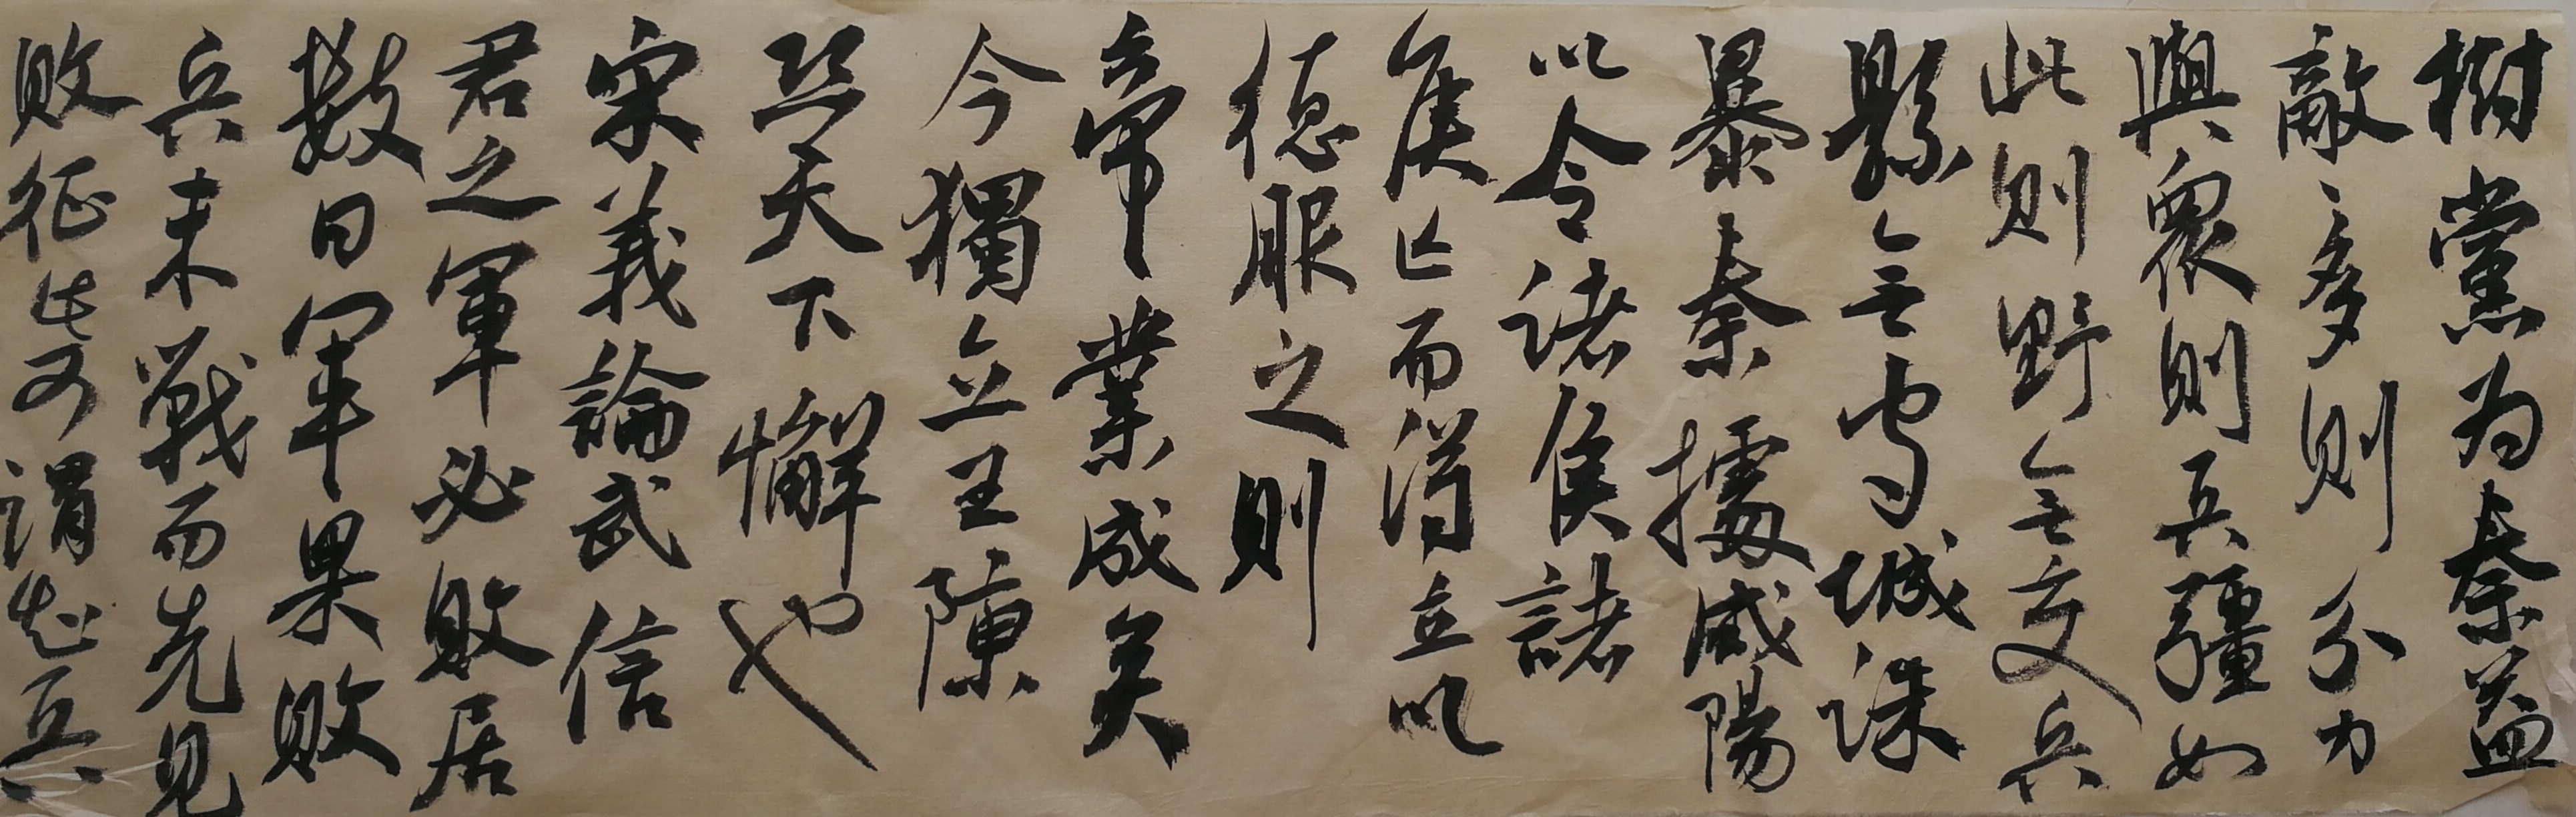 樹黨為秦益
敵〻多則力分力
與衆則兵彊如
此則野無交兵
縣無守城誅
暴秦據咸陽
以令諸侯諸
侯亡而得立以
德服之則
帝業成矣
今獨立王陳
恐天下懈也
宋義論武信
君之軍必敗居
數日軍果敗
兵未戰而先見
敗征此可謂知兵